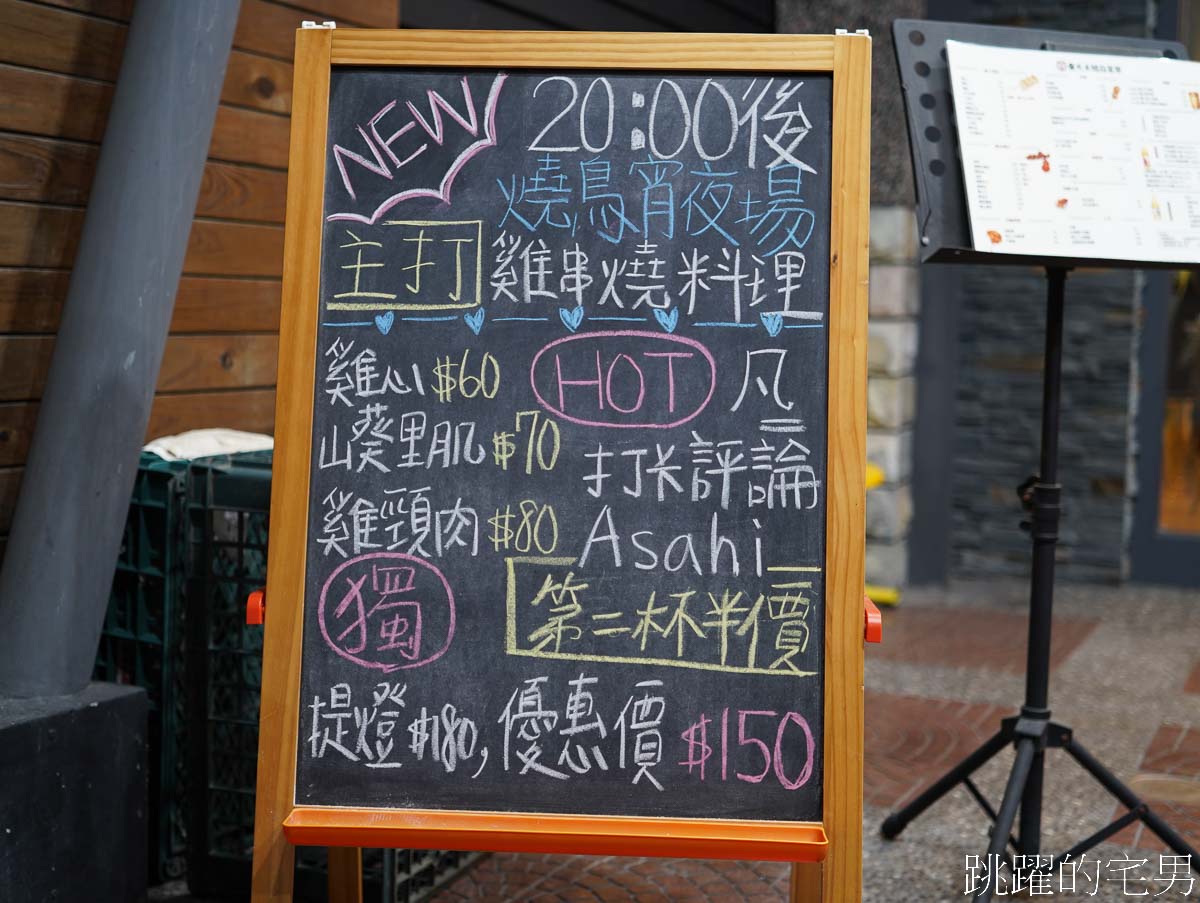 NEW
20:00後
燒鳥宵夜場
主打 雞串燒料理
雞心 $60
山葵里肌 $70
雞頸肉 $80
HOT 凡
打卡評論
Asahi
第二杯半價
獨
提燈 $180, 優惠價 $150
跳躍的宅男